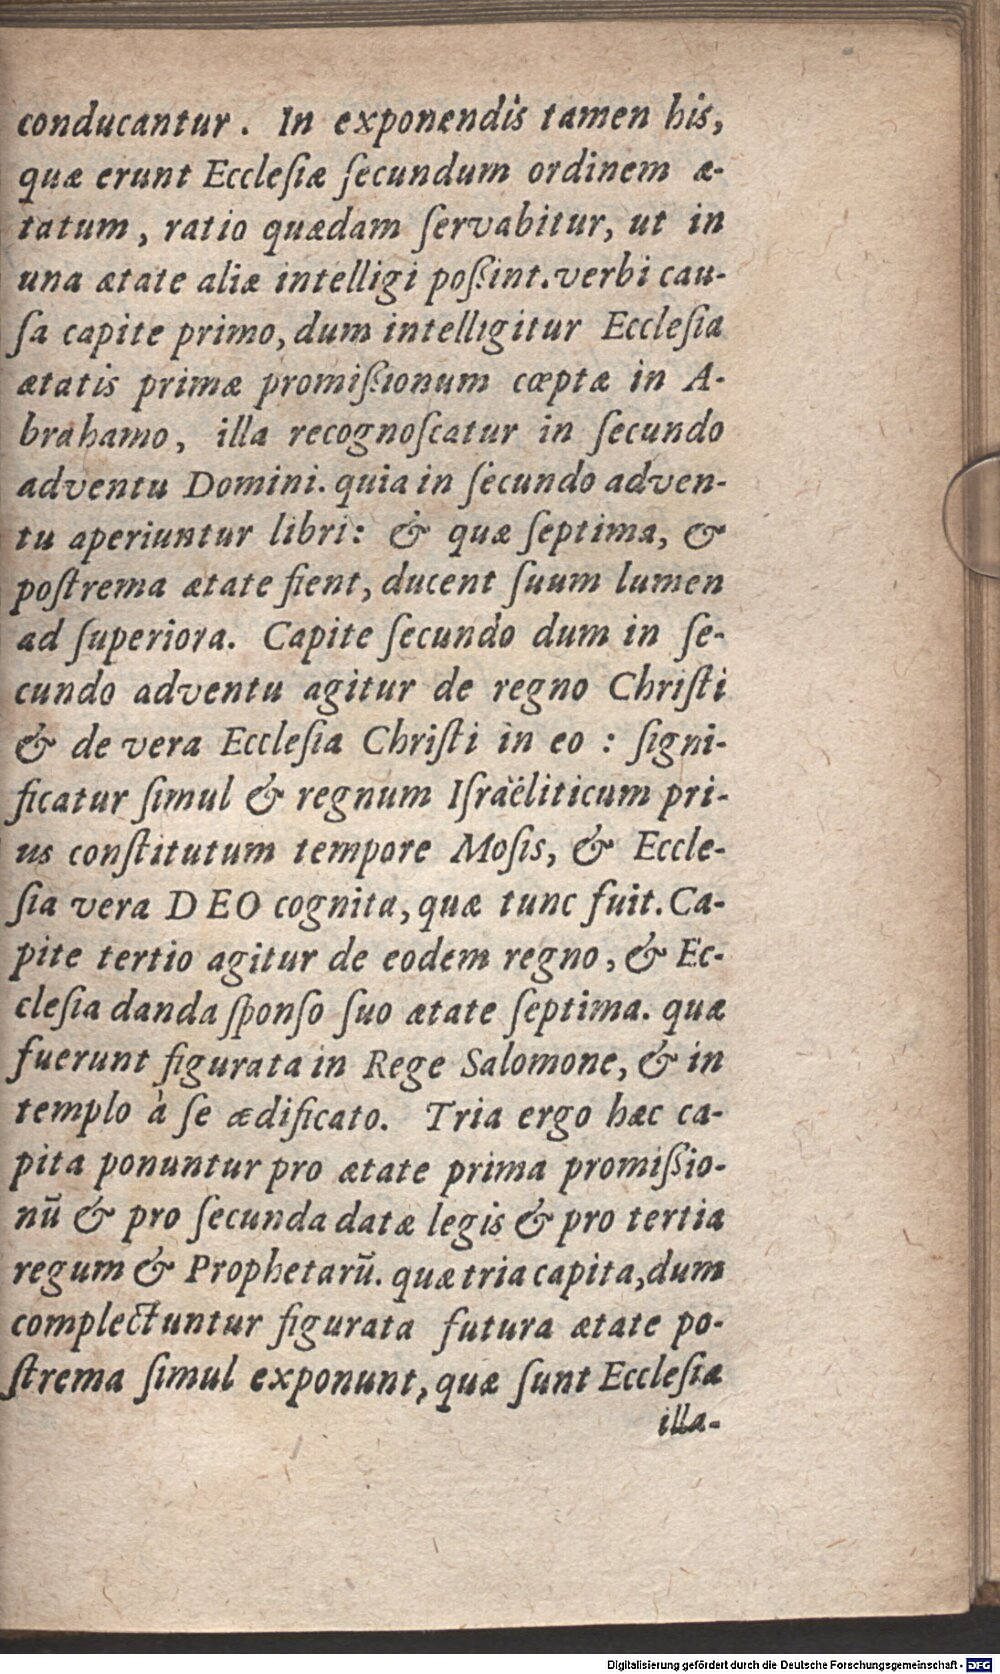 conducantur. In exponendis tamen his,
quæ erunt Ecclesiæ ſecundum ordinem æ-
tatum, ratio quædam ſervabitur, ut in
una ætate aliæ intelligi poßint. verbi cau-
ſa capite primo, dum intelligitur Eccleſia
ætatis primæ promißionum cœptæ in A-
brahamo, illa recognoſcatur in ſecundo
adventu Domini. quia in ſecundo adven-
tu aperiuntur libri: & quæ ſeptima, &
poſtrema ætate fient, ducent ſuum lumen
ad ſuperiora. Capite ſecundo dum in ſe-
cundo adventu agitur de regno Chriſti
& de vera Eccleſia Chriſti in eo : ſigni-
ficatur ſimul & regnum Iſraëliticum pri-
us conſtitutum tempore Moſis, & Eccle-
ſia vera DEO cognita, quæ tunc fuit. Ca-
pite tertio agitur de eodem regno, & Ec-
cleſia danda ſponſo ſuo ætate ſeptima. quæ
fuerunt figurata in Rege Salomone, & in
templo à ſe ædificato. Tria ergo hæc ca-
pita ponuntur pro ætate prima promißio-
nū & pro ſecunda datæ legis & pro tertia
regum & Prophetarū. quæ tria capita, dum
complectuntur figurata futura ætate po-
ſtrema ſimul exponunt, quæ ſunt Eccleſiæ
illa-
Digitalisierung gefördert durch die Deutsche Forschungsgemeinschaft - DFG